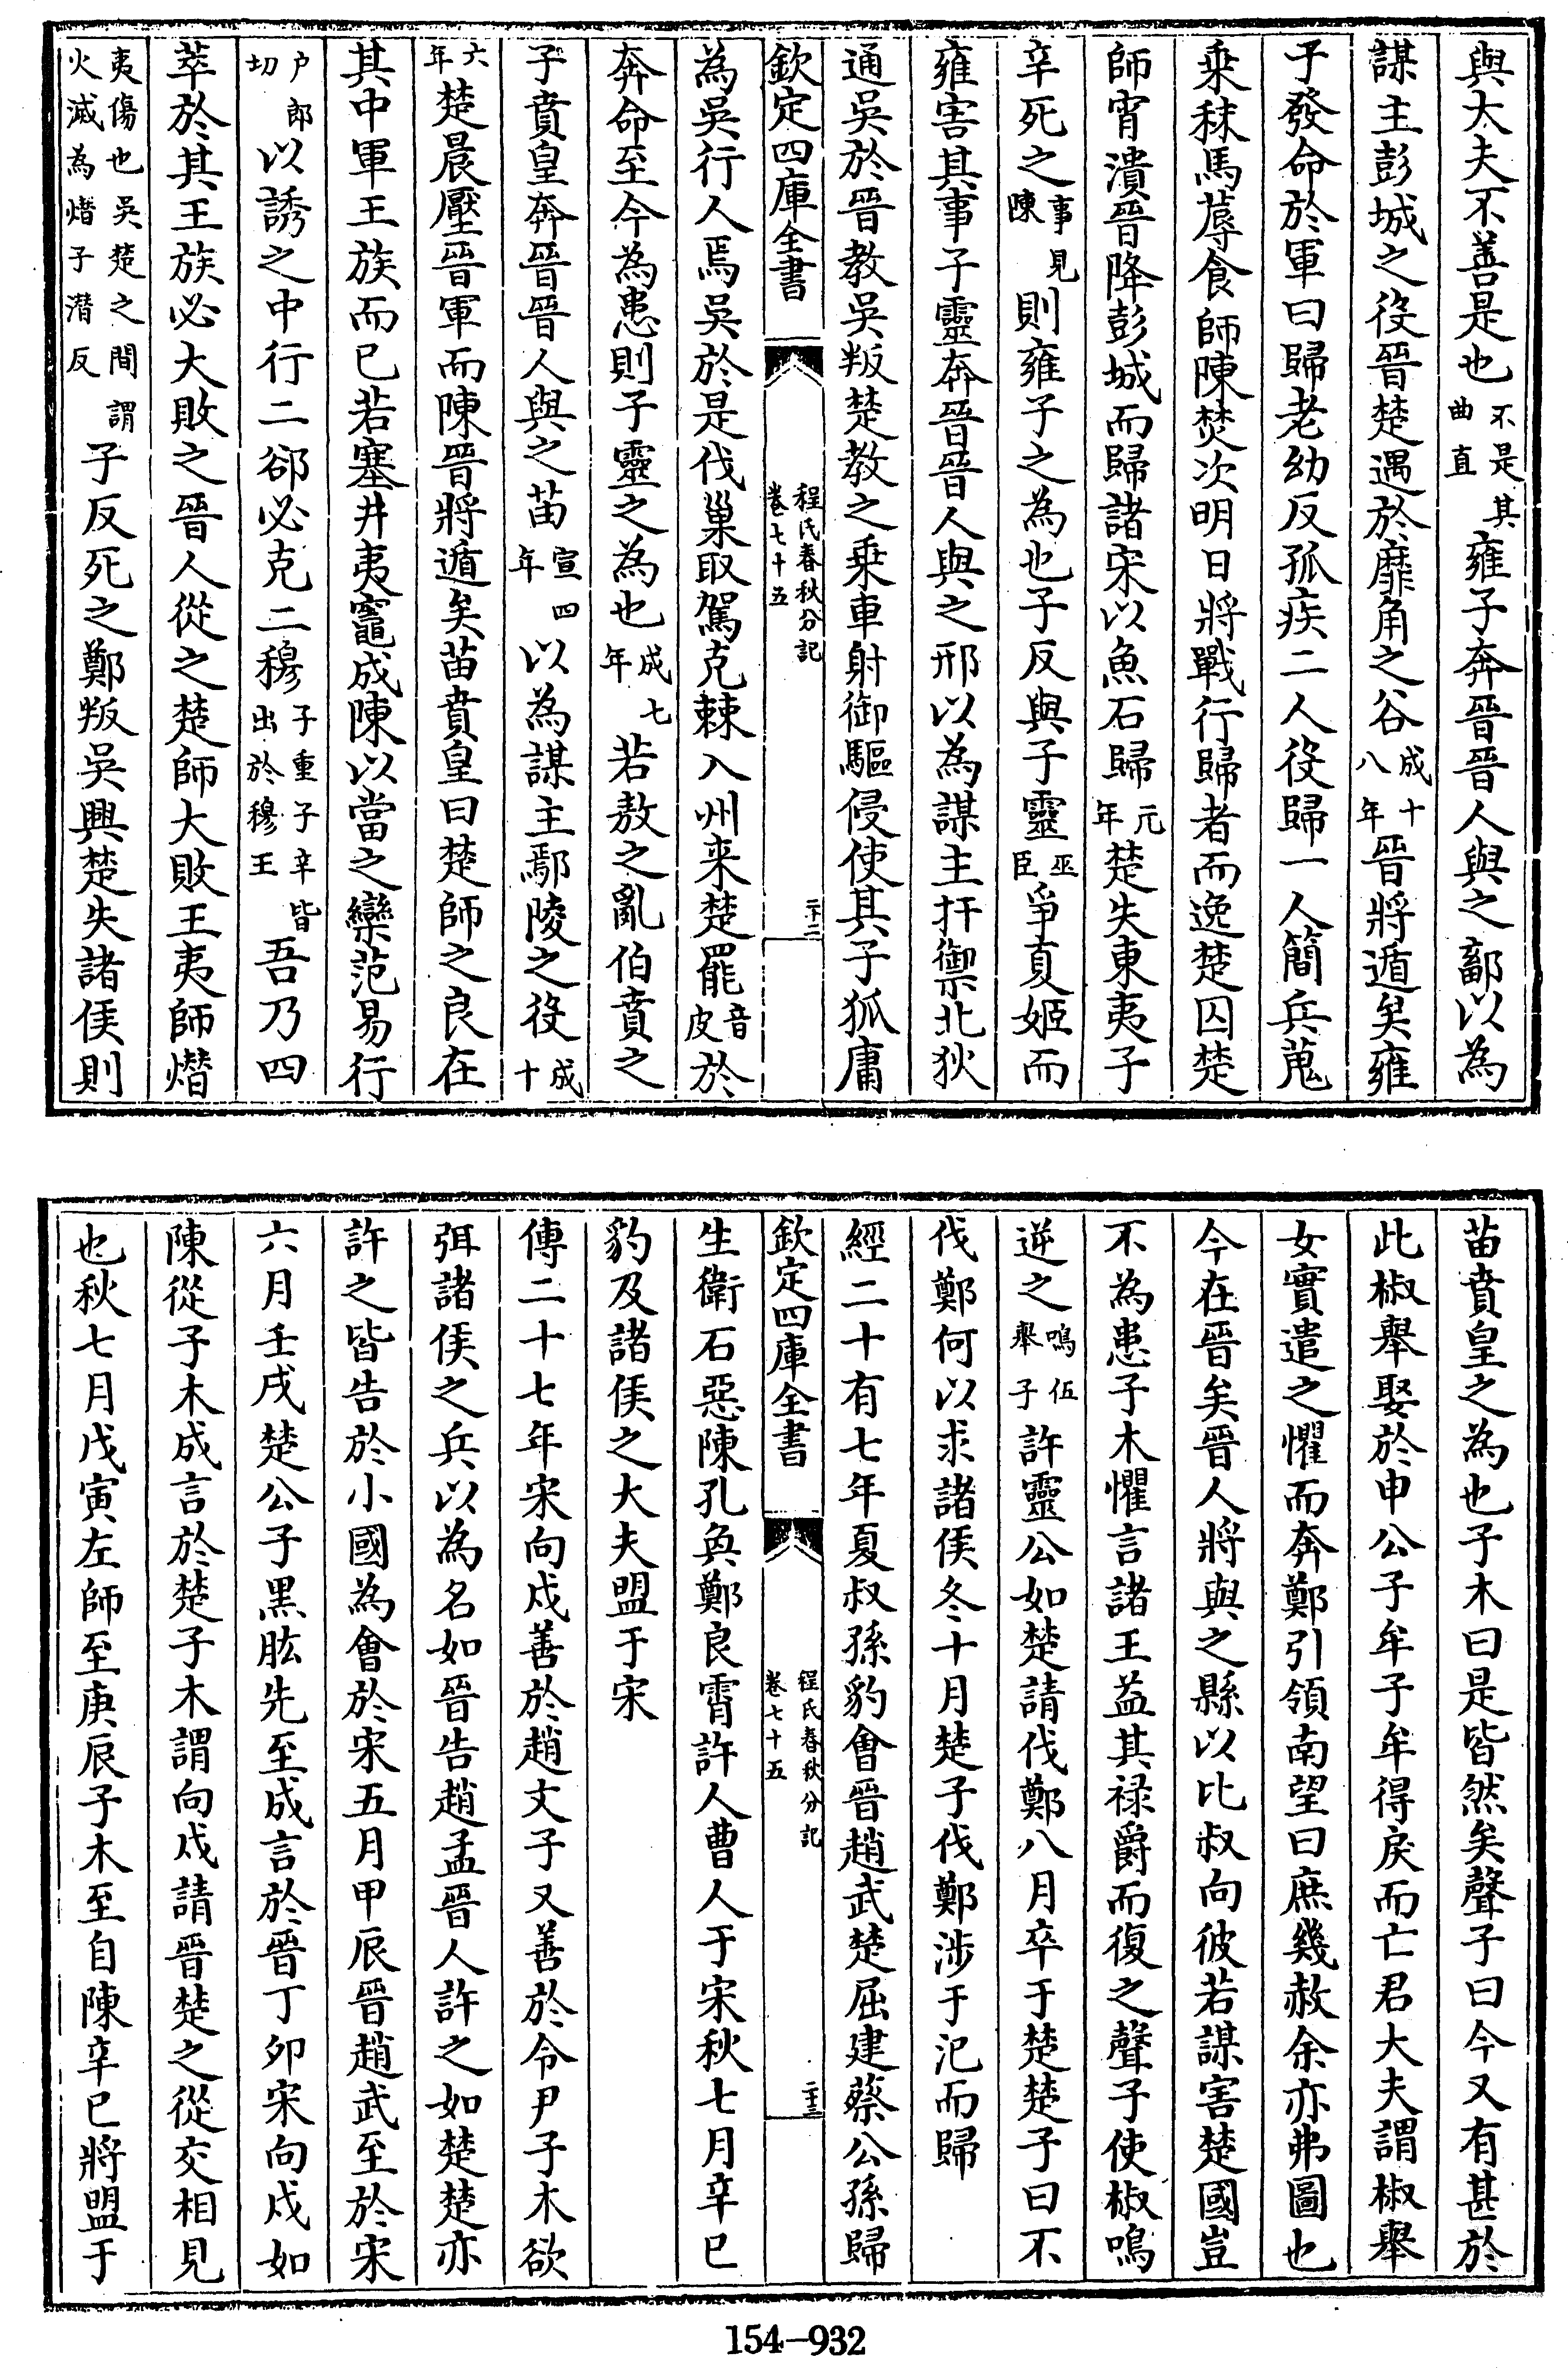 與大夫不善是也不是其曲直雍子奔晉晉人與之鄐以為
謀主彭城之役晉楚遇於靡角之谷成十八年晉將遁矣雍
子發命於軍曰歸老幼反孤疾二人役歸一人簡兵蒐
乗秣馬蓐食師陳焚次明日將戰行歸者而逸楚囚楚
師宵潰晉降彭城而歸諸宋以魚石歸元年楚失東夷子
辛死之事見陳則雍子之為也子反與子靈巫臣爭夏姬而
雍害其事子靈奔晉晉人與之邢以為謀主扞禦北狄
通吳於晉教吳叛楚教之乗車射御驅侵使其子狐庸
欽定四庫全書 程氏春秋分記 卷七十五 二十二
為吳行人焉吳於是伐巢取駕克棘入州来楚罷音皮於
奔命至今為患則子靈之為也成七年若敖之亂伯賁之
子賁皇奔晉晉人與之苗宣四年以為謀主鄢陵之役成十
六年楚晨壓晉軍而陳晉將遁矣苗賁皇曰楚師之良在
其中軍王族而已若塞井夷竈成陳以當之欒范易行
户郎切以誘之中行二郤必克二穆子重子辛皆出於穆王吾乃四
萃於其王族必大敗之晉人從之楚師大敗王夷師熸
夷傷也吳楚之間謂火滅為熸子潛反子反死之鄭叛吳興楚失諸侯則
苗賁皇之為也子木曰是皆然矣聲子曰今又有甚於
此椒舉娶於申公子牟子牟得戾而亡君大夫謂椒舉
女實遣之懼而奔鄭引領南望曰庶幾赦余亦弗圖也
今在晉矣晉人將與之縣以比叔向彼若謀害楚國豈
不為患子木懼言諸王益其禄爵而復之聲子使椒鳴
逆之鳴伍舉子許靈公如楚請伐鄭八月卒于楚楚子曰不
伐鄭何以求諸侯冬十月楚子伐鄭涉于氾而歸
經二十有七年夏叔孫豹會晉趙武楚屈建蔡公孫歸
欽定四庫全書 程氏春秋分記 卷七十五 二十三
生衛石惡陳孔奐鄭良霄許人曹人于宋秋七月辛巳
豹及諸侯之大夫盟于宋
傳二十七年宋向戌善於趙文子又善於令尹子木欲
弭諸侯之兵以為名如晉告趙孟晉人許之如楚楚亦
許之皆告於小國為會於宋五月甲辰晉趙武至於宋
六月壬戌楚公子黑肱先至成言於晉丁卯宋向戌如
陳從子木成言於楚子木謂向戌請晉楚之從交相見
也秋七月戊寅左師至庚辰子木至自陳辛巳將盟于
154-932